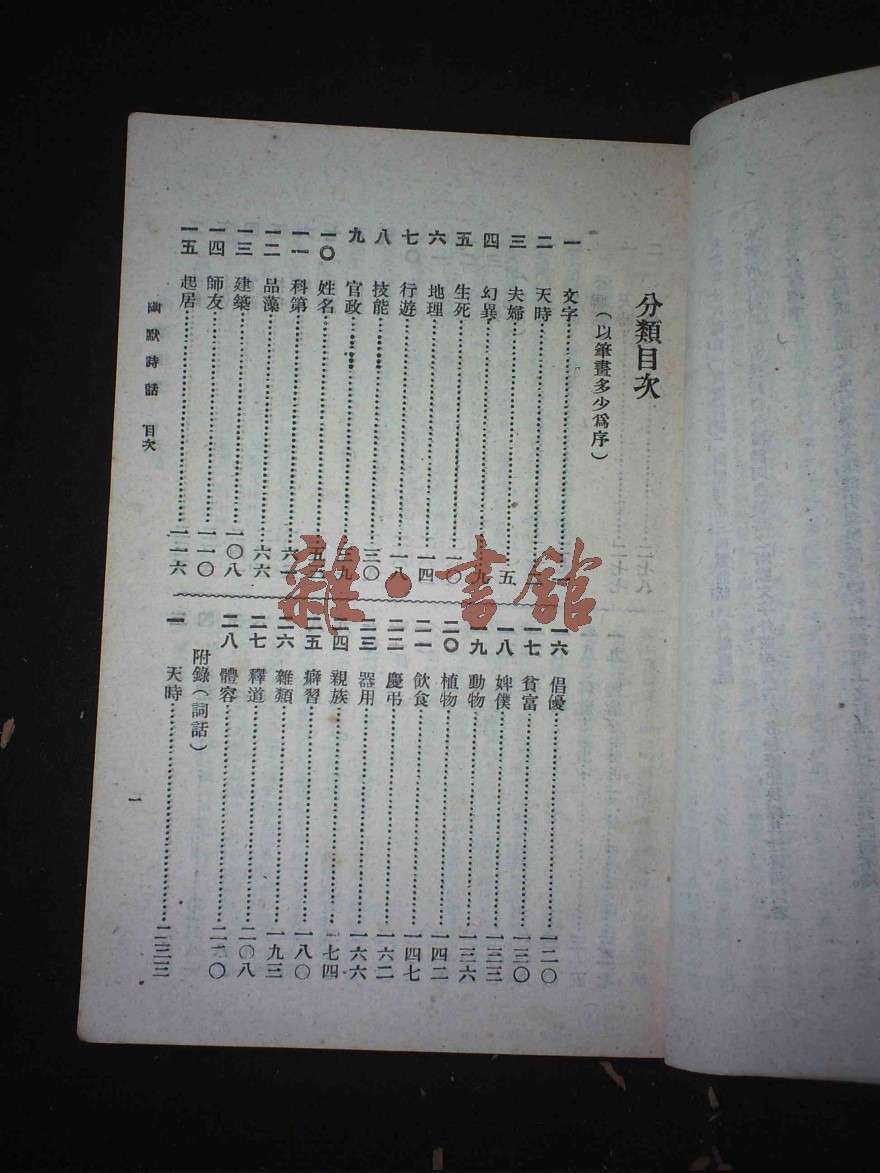 分類目次
（以筆畫多少爲序）
一 文字……一
二 天時……二
三 夫婦……五
四 幻異……九
五 生死……一〇
六 地理……一四
七 行遊……一八
八 技能……三〇
九 官政……三九
一〇 姓名……五三
一一 科第……六一
一二 品藻……六六
一三 建築……一〇八
一四 師友……一一〇
一五 起居……一一六
一六 倡優……一二〇
一七 貧富……一三〇
一八 婢僕……一三三
一九 動物……一三六
二〇 植物……一四二
二一 飲食……一四七
二二 慶弔……一六二
二三 器用……一六六
二四 親族……一七四
二五 癖習……一八〇
二六 雜類……一九三
二七 釋道……二〇八
二八 體容……二二〇
附錄（詞話）
一 天時……二三三
幽默詩話 目次
一
雜·書館